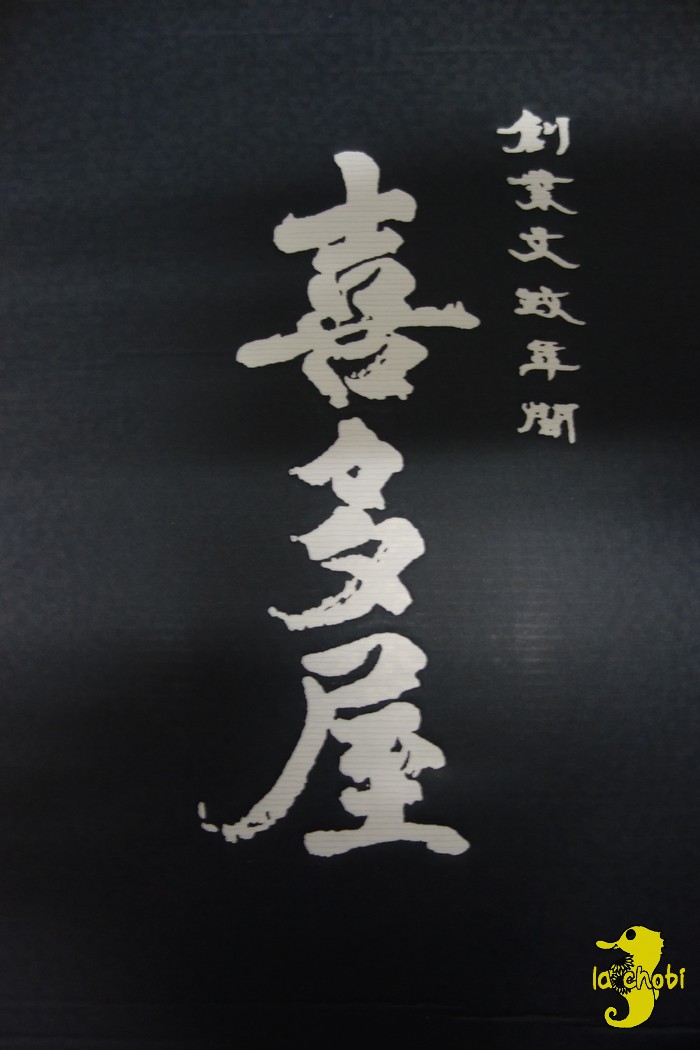 創業文政年間
喜多屋
la chobi